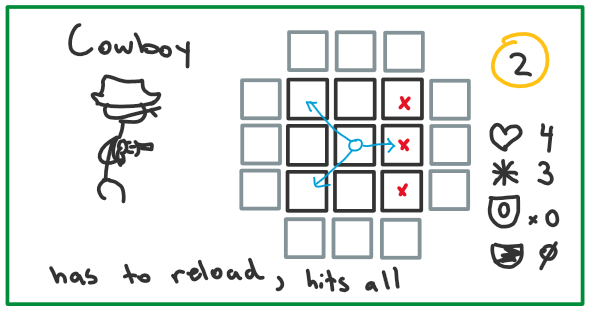 Cowboy
2
4
3
0 x 0
Ø
has to reload, hits all